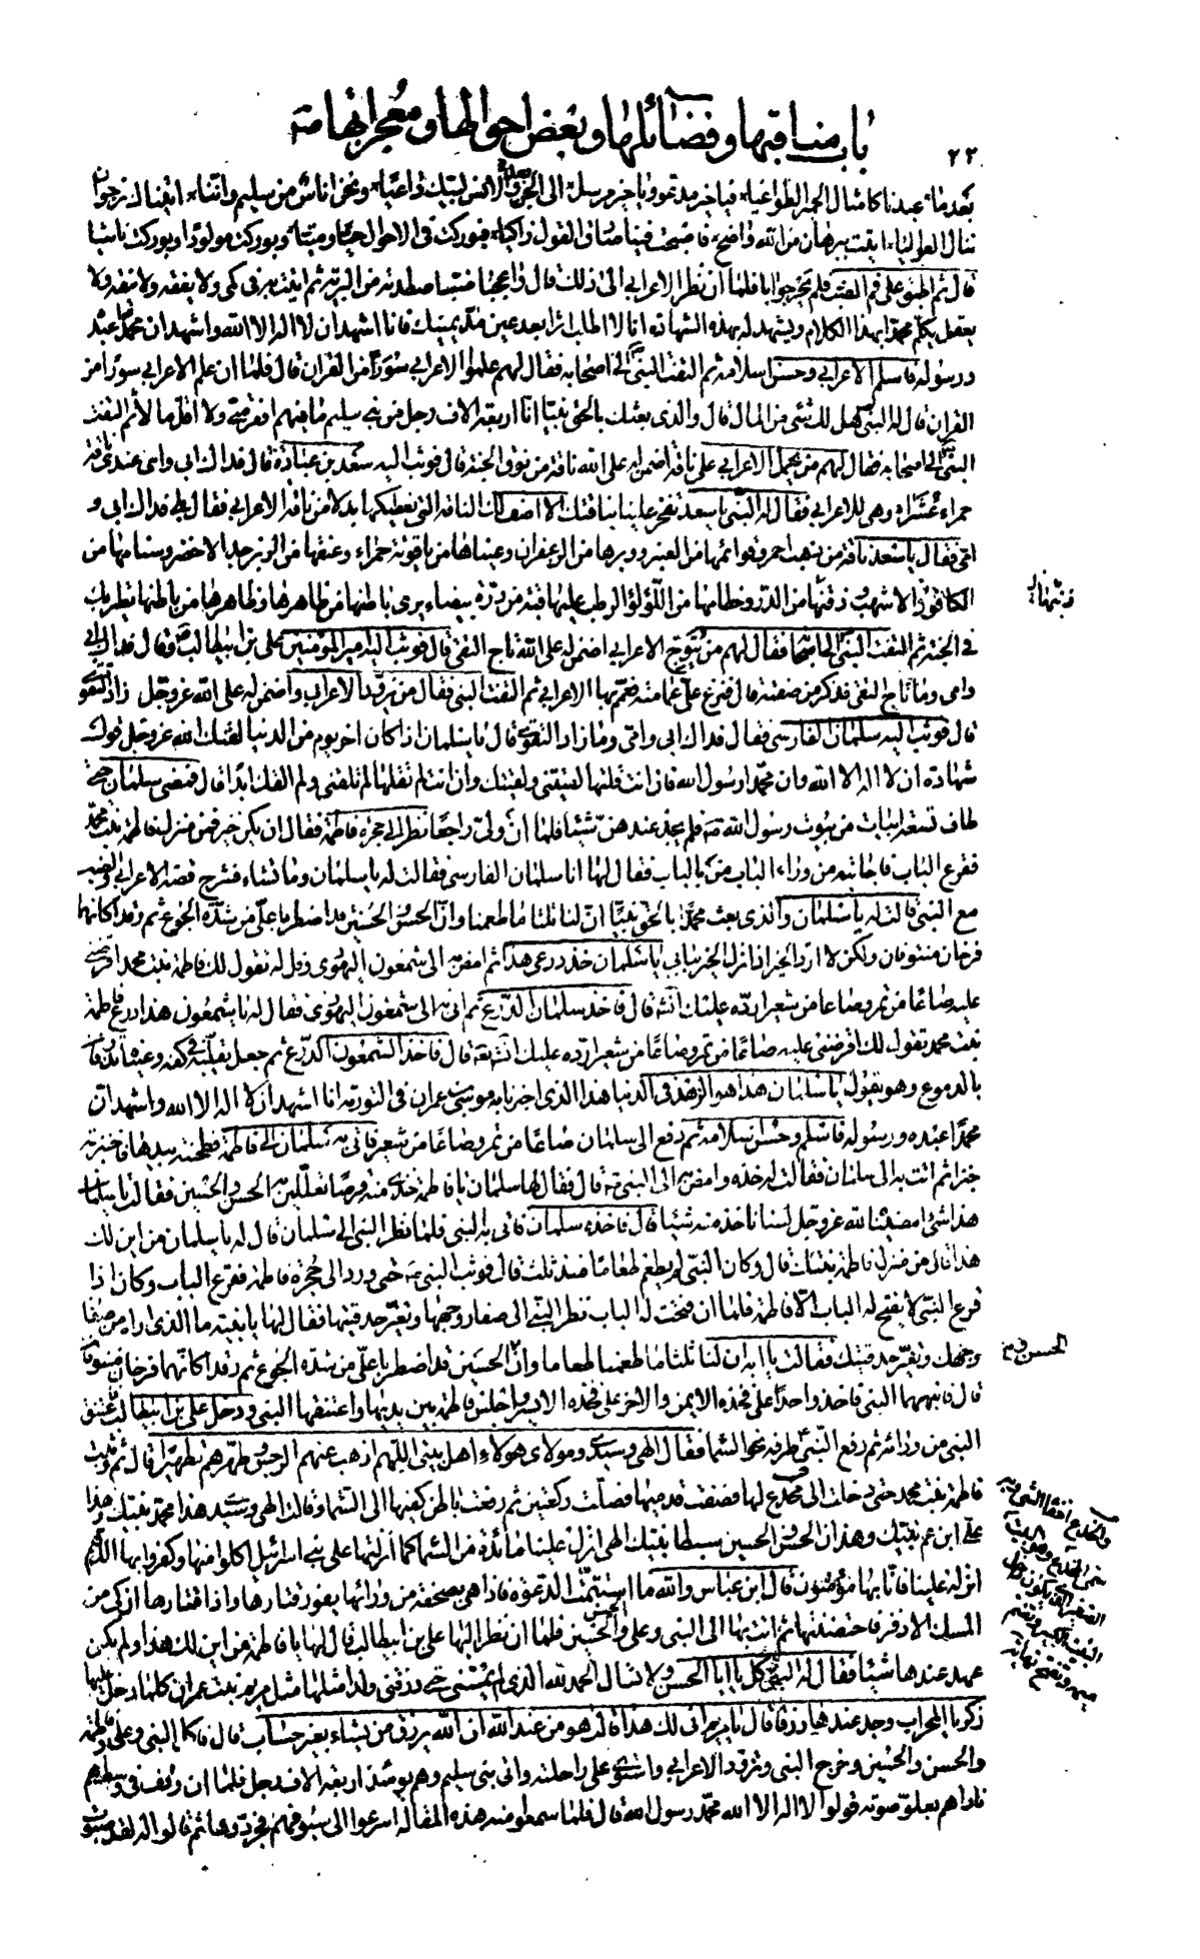 باب مناقبها و فضائلها و بعض احوالها و معجزاتها صة
٢٢
بعدما عبدنا كامثال الحمر الطواغيا فيا خير مدعو ويا خير مرسل الى الجن والانس لبيك داعيا ونحن اناس من سليم واننا اتيناك نرجوا ان
ننال العواليا اتيت ببرهان من الله واضح فاصبحت فينا صادق القول زاكيا فبوركت في الاحوال حيا وميتا وبوركت مولودا وبوركت ناشيا
قال ثم اطبق على فم الضب فلم يحر جوابا فلما ان نظر الاعرابي الى ذلك قال واعجبا ضب اصطدته من البرية ثم اتيت به في كمي لا يفقه ولا ينقه ولا
يعقل يكلم محمدا بهذا الكلام ويشهد له بهذه الشهادة انا لا اطلب اثرا بعد عين مد يمينك فانا اشهد ان لا اله الا الله واشهد ان محمدا عبده
ورسوله فاسلم الاعرابي وحسن اسلامه ثم التفت النبي الى اصحابه فقال لهم علموا الاعرابي سورا من القران قال فلما ان علم الاعرابي سورا من
القران قال له النبي هل لك شئ من المال قال والذي بعثك بالحق نبيا انا اربعة الاف رجل من بني سليم ما فيهم افقر مني ولا اقل مالا ثم التفت
النبي الى اصحابه فقال لهم من يحمل الاعرابي على ناقة اضمن له على الله ناقة من نوق الجنة قال فوثب اليه سعد بن عبادة قال فداك ابي وامي عندي ناقة
حمراء عشراء وهي للاعرابي فقال له النبي يا سعد تفخر علينا بناقتك الا اصف لك الناقة التي نعطيكها بدلا من ناقة الاعرابي فقال بلى فداك ابي و
امي فقال يا سعد ناقة من ذهب احمر وقوائمها من العنبر ووبرها من الزعفران وعيناها من ياقوتة حمراء وعنقها من الزبرجد الاخضر وسنامها من
الكافور الاشهب وذقنها من الدر وخطامها من اللؤلؤ الرطب عليها قبة من درة بيضاء يرى باطنها من ظاهرها وظاهرها من باطنها تطير بك
في الجنة ثم التفت النبي الى اصحابه فقال لهم من يتوج الاعرابي اضمن له على الله تاج التقى قال فوثب اليه امير المؤمنين علي بن ابيطالب وقال فداك ابي
وامي وما تاج التقى فذكر من صفته قال فنزع علي عمامته فعمم بها الاعرابي ثم التفت النبي فقال من يزود الاعرابي واضمن له على الله عز وجل زاد التقوى
قال فوثب اليه سلمان الفارسي فقال فداك ابي وامي وما زاد التقوى قال يا سلمان اذا كان اخر يوم من الدنيا لقنك الله عز وجل قول
شهادة ان لا اله الا الله وان محمدا رسول الله فان انت قلتها لقيتني ولقيتك وان انت لم تقلها لم تلقني ولم القك ابدا قال فمضى سلمان حتى
طاف تسعة ابيات من بيوت رسول الله صة فلم يجد عندهن شيئا فلما ان ولى راجعا نظر الى حجرة فاطمة فقال ان يكن خير فمن منزل فاطمة بنت محمد
فقرع الباب فاجابته من وراء الباب من بالباب فقال لها انا سلمان الفارسي فقالت له يا سلمان وما تشاء فشرح قصة الاعرابي والضب
مع النبي قالت له يا سلمان والذي بعث محمدا بالحق نبيا ان لنا ثلثا ما طعمنا وان الحسن والحسين قد اضطربا علي من شدة الجوع ثم رقدا كانهما
فرخان منتوفان ولكن لا ارد الخير اذا نزل الخير ببابي يا سلمان خذ درعي هذا ثم امض به الى شمعون اليهودي وقل له تقول لك فاطمة بنت محمد اقرضني
عليه صاعا من تمر وصاعا من شعير ارده عليك انشاء الله قال فاخذ سلمان الدرع ثم اتى به الى شمعون اليهودي فقال له يا شمعون هذا درع فاطمة
بنت محمد تقول لك اقرضني عليه صاعا من تمر وصاعا من شعير ارده عليك انشاء الله قال فاخذ شمعون الدرع ثم جعل يقلبه في كفه وعيناه تذرفان
بالدموع وهو يقول يا سلمان هذا هو الزهد في الدنيا هذا الذي اخبرنا به موسى بن عمران في التورية انا اشهد ان لا اله الا الله واشهد ان
محمدا عبده ورسوله فاسلم وحسن اسلامه ثم دفع الى سلمان صاعا من تمر وصاعا من شعير فاتى به سلمان الى فاطمة فطحنته بيدها واختبزته
خبزا ثم اتت به الى سلمان فقالت له خذه وامض به الى النبي صة قال فقال لها سلمان يا فاطمة خذي منه قرصا تعللين به الحسن والحسين فقالت يا سلمان
هذا شئ امضيناه لله عز وجل لسنا ناخذ منه شيئا قال فاخذه سلمان فاتى به النبي فلما نظر النبي الى سلمان قال له يا سلمان من اين لك
هذا قال من منزل فاطمة بنتك قال وكان النبي لم يطعم طعاما منذ ثلث قال فوثب النبي صة حتى ورد الى حجرة فاطمة فقرع الباب وكان اذا
قرع النبي لا يفتح له الباب الا فاطمة فلما ان فتحت له الباب نظر النبي الى صفار وجهها وتغير حدقتيها فقال لها يا بنية ما الذي اراه من صفار
وجهك وتغير حدقتيك فقالت يا ابه ان لنا ثلثا ما طعمنا طعاما وان الحسين قد اضطربا علي من شدة الجوع ثم رقدا كانهما فرخان منتوفان
قال فانبههما النبي فاخذ واحدا على فخذه الايمن والاخر على فخذه الايسر واجلس فاطمة بين يديها واعتنقها النبي ودخل علي بن ابيطالب فاعتنق
النبي من ورائه ثم رفع النبي طرفه نحو السماء فقال الهي وسيدي ومولاي هولاء اهل بيتي اللهم اذهب عنهم الرجس وطهرهم تطهيرا قال ثم وثبت
فاطمة بنت محمد حتى دخلت الى مخدع لها فصفت قدميها فصلت ركعتين ثم رفعت باطن كفيها الى السماء وقالت الهي وسيدي هذا محمد نبيك وهذا
علي ابن عم نبيك وهذان الحسن والحسين سبطا نبيك الهي انزل علينا مائدة من السماء كما انزلتها على بني اسرائيل اكلوا منها وكفروا بها اللهم
انزلها علينا فانا بها مؤمنون قال ابن عباس والله ما استتمت الدعوة فاذا هي بصحفة من ورائها يفور قتارها واذا قتارها ازكى من
المسك الاذفر فاحتضنتها ثم اتت بها الى النبي وعلي والحسن والحسين فلما ان نظر اليها علي بن ابيطالب قال لها يا فاطمة من اين لك هذا ولم يكن
عهد عندها شيئا فقال له النبي كل يا ابا الحسن ولا تسال الحمد لله الذي لم يمتني حتى رزقني ولدا مثلها مثل مريم بنت عمران كلما دخل عليها
زكريا المحراب وجد عندها رزقا قال يا مريم انى لك هذا قالت هو من عند الله ان الله يرزق من يشاء بغير حساب قال فاكل النبي وعلي وفاطمة
والحسن والحسين وخرج النبي وتزود الاعرابي واستوى على راحلته واتى بني سليم وهم يومئذ اربعة الاف رجل فلما ان وقف في وسطهم
ناداهم بعلو صوته قولوا لا اله الا الله محمد رسول الله قال فلما سمعوا منه هذه المقالة اسرعوا الى سيوفهم فجردوها ثم قالوا له لقد صبوت
الحسن و
والمخدع
البيت الكبير